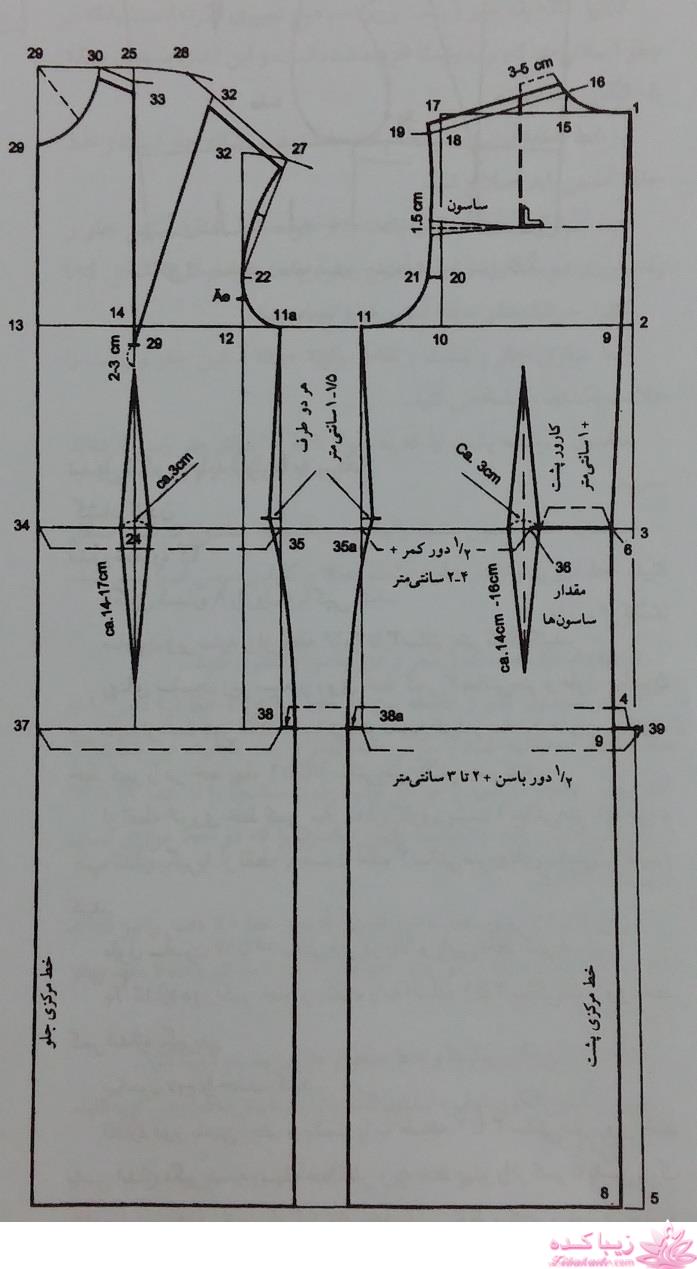 29
30
25
28
33
32
3-5 cm
16
17
1
19
18
15
29
32
27
1.5 cm
ساسون
22
21
20
Äe
14
11a
11
13
12
10
9
2
29
2-3 cm
هر دو طرف
۱-۱/۵ سانتی‌متر
ca.3cm
Ca. 3cm
کارور پشت
+۱ سانتی‌متر
34
24
35
35a
۱/۲ دور کمر +
۲-۴ سانتی‌متر
36
6
3
مقدار
ساسون‌ها
ca.14-17cm
ca.14cm -16cm
37
38
38a
4
9
39
۱/۲ دور باسن + ۲ تا ۳ سانتی‌متر
خط مرکزی جلو
خط مرکزی پشت
8
5
زیباکده
Zibakade.com